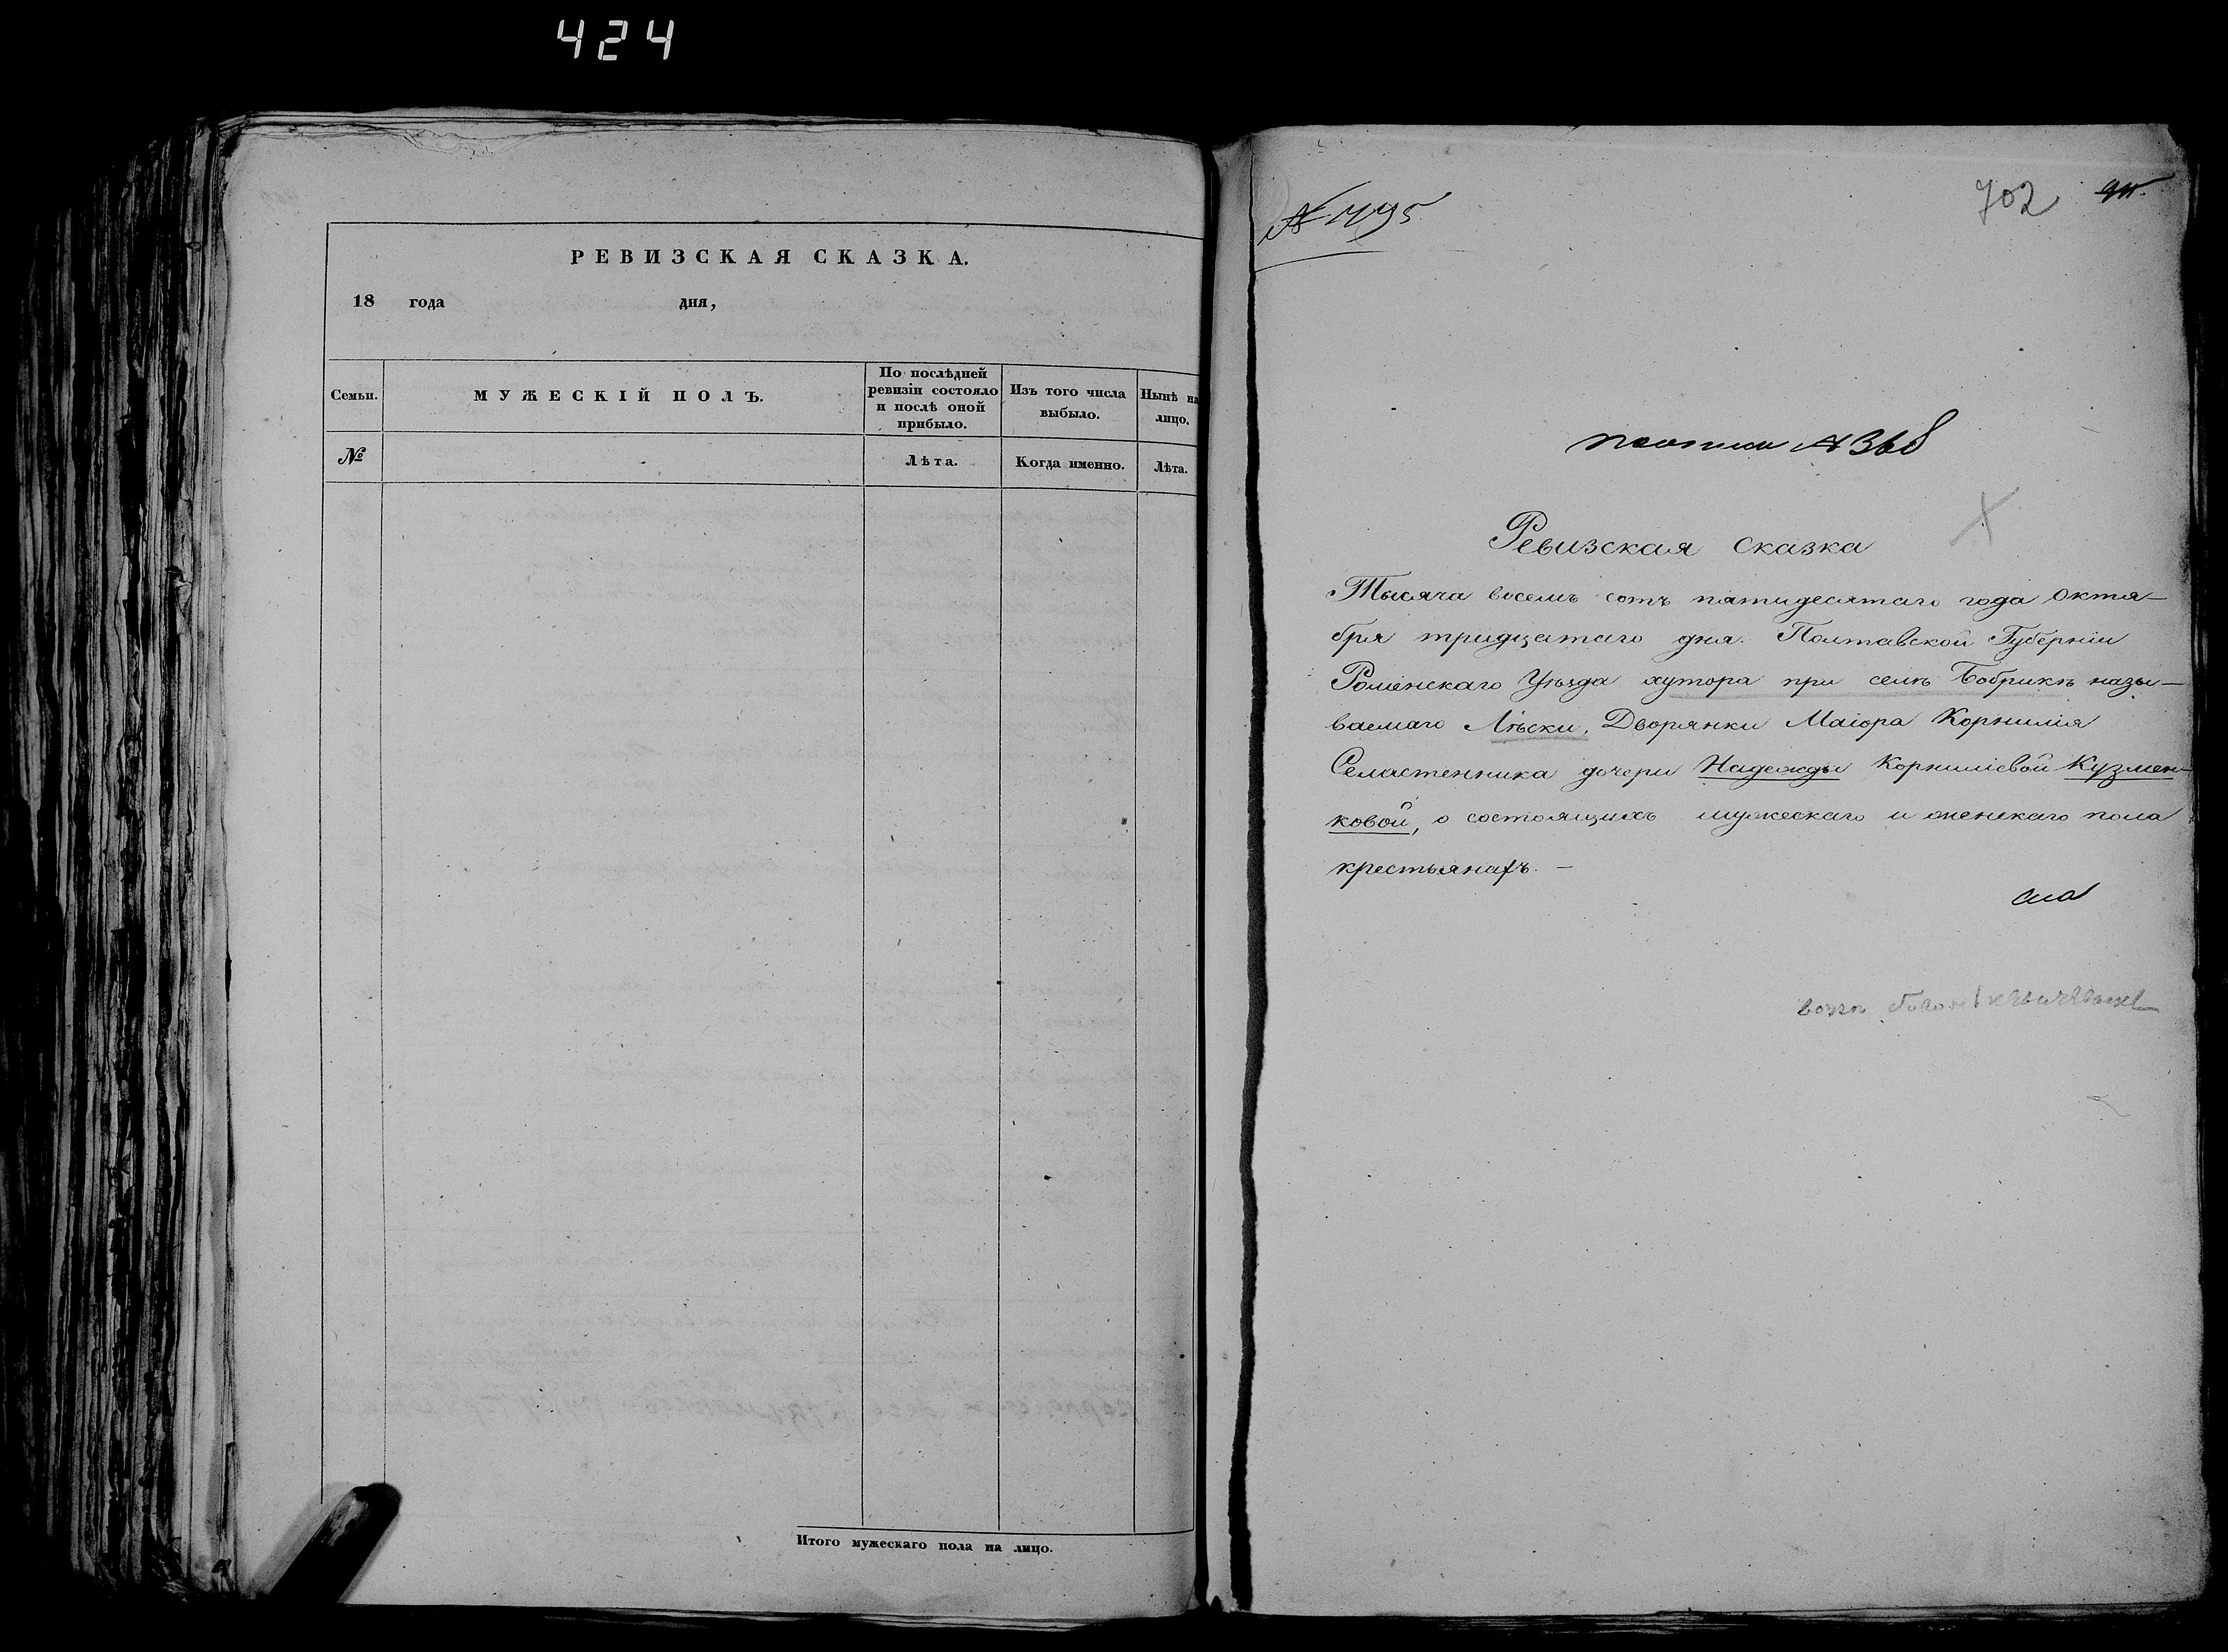 424
РЕВИЗСКАЯ СКАЗКА.
18 года дня,
Семьи.
МУЖЕСКІЙ ПОЛЪ.
По послѣдней
ревизіи состояло
и послѣ оной
прибыло.
Изъ того числа
выбыло.
Нынѣ на
лицо.
№
Лѣта.
Когда именно.
Лѣта.
Итого мужескаго пола на лицо.
702
№ 368
Ревизская сказка
Тысяча восемь сотъ пятидесятаго года октя-
бря тридцатаго дня. Полтавской Губерніи
Роменскаго Уѣзда хутора при селѣ Бобрикѣ назы-
ваемаго Лѣски, Дворянки Маіора Корнилія
Селастенника дочери Надежды Корниліевой Кузмен-
ковой, о состоящихъ мужескаго и женскаго пола
крестьянахъ. —